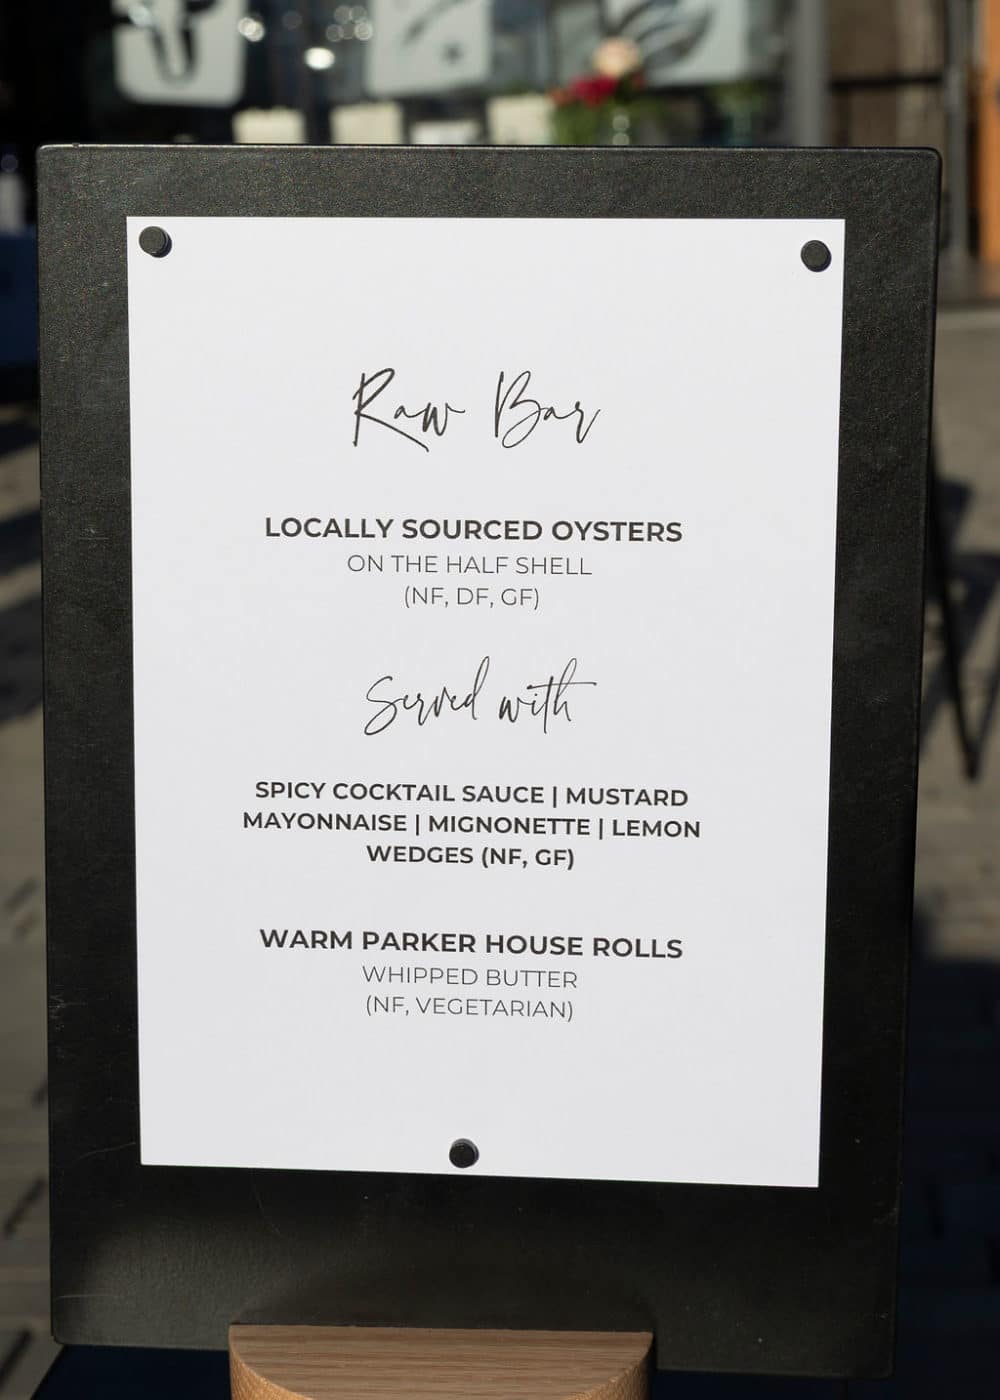 Raw Bar
LOCALLY SOURCED OYSTERS
ON THE HALF SHELL
(NF, DF, GF)
Served with
SPICY COCKTAIL SAUCE | MUSTARD
MAYONNAISE | MIGNONETTE | LEMON
WEDGES (NF, GF)
WARM PARKER HOUSE ROLLS
WHIPPED BUTTER
(NF, VEGETARIAN)